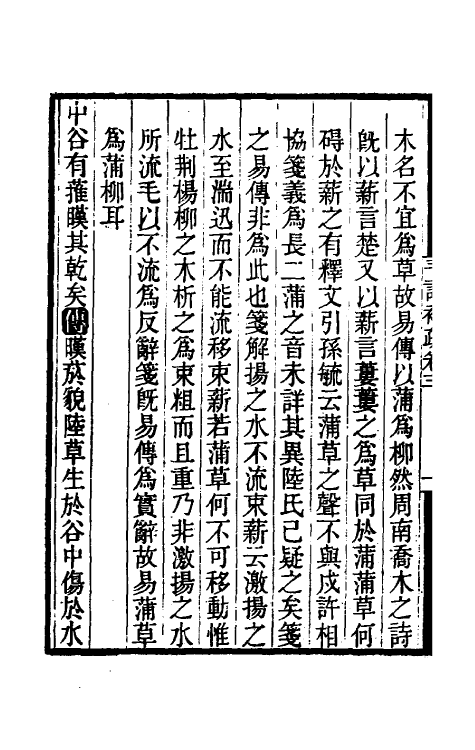 木名不宜爲草故易傳以蒲爲柳然周南喬木之詩
旣以薪言楚又以薪言蔞蔞之爲草同於蒲蒲草何
碍於薪之有釋文引孫毓云蒲草之聲不與戍許相
協箋義爲長二蒲之音未詳其異陸氏已疑之矣箋
之易傳非爲此也箋解揚之水不流束薪云激揚之
水至湍迅而不能流移束薪若蒲草何不可移動惟
牡荆楊柳之木析之爲束粗而且重乃非激揚之水
所流毛以不流爲反辭箋旣易傳爲實辭故易蒲草
爲蒲柳耳
中谷有蓷暵其乾矣傳暵菸貌陸草生於谷中傷於水
毛詩補疏卷三